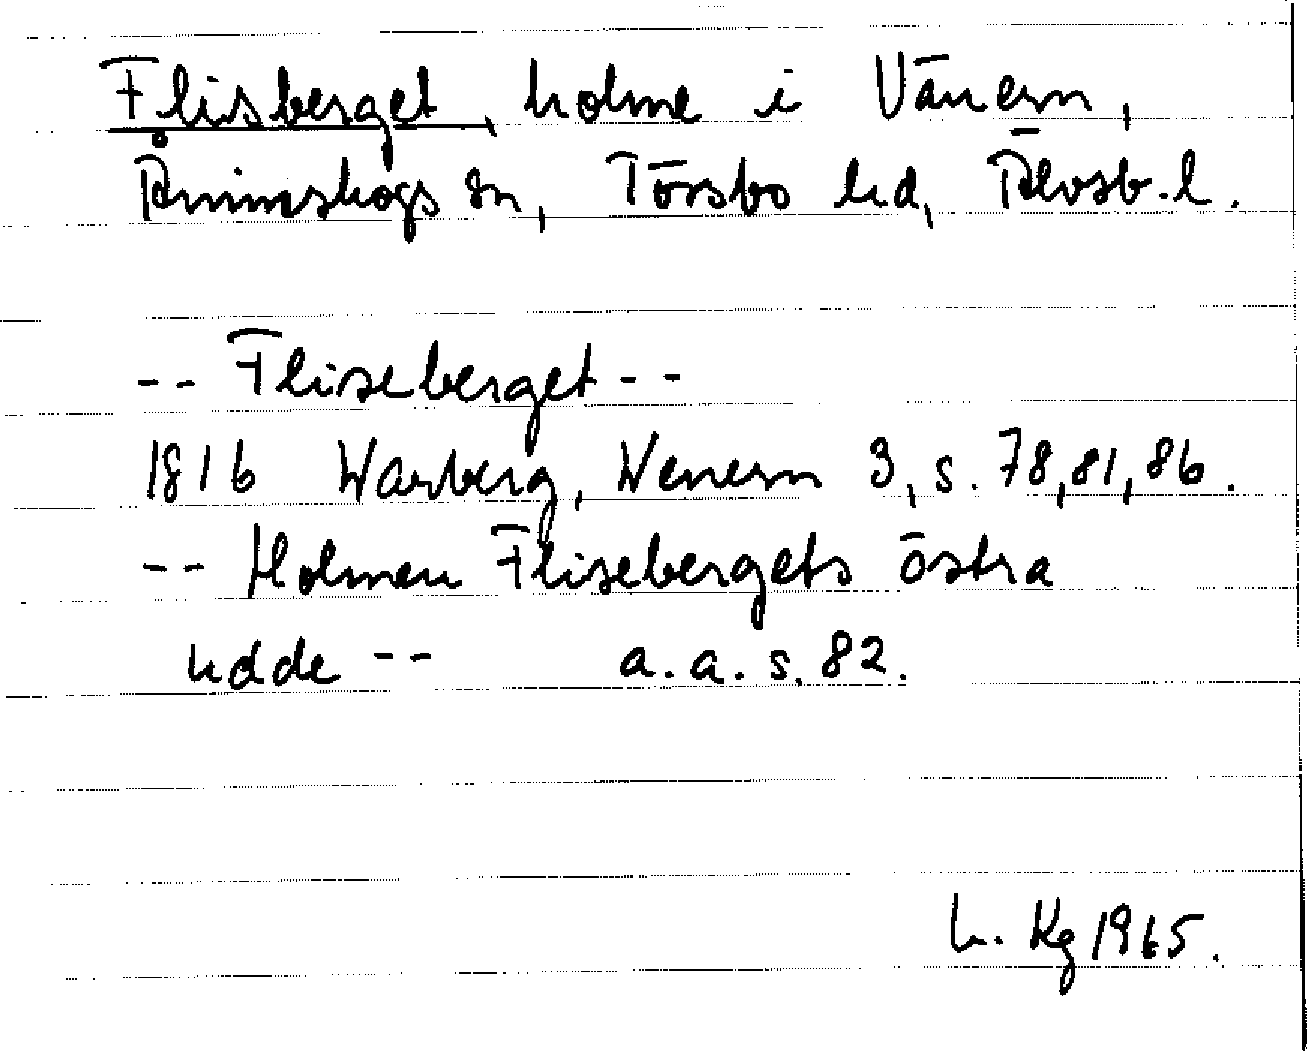 Flisberget, holme i Vänern,
Ånimskogs sn, Tössbo hd, Älvsb. l.
-- Fliseberget --
1816 Warberg, Wenern 3, s. 78, 81, 86.
-- Holmen Flisebergets östra
udde -- a. a. s. 82.
L. Kg 1965.